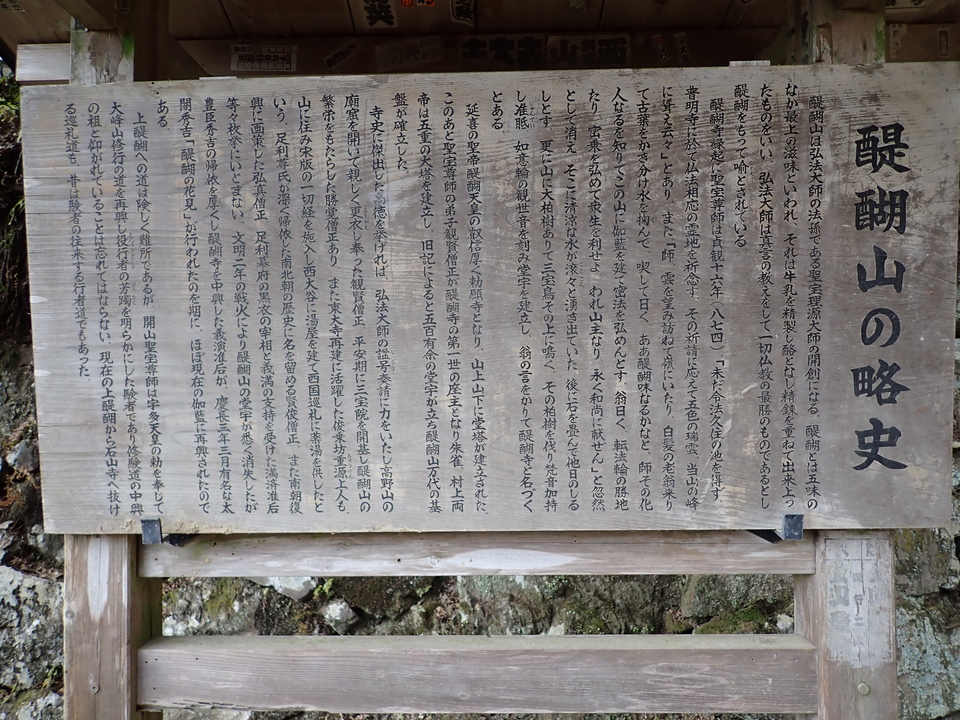 醍醐山の略史
醍醐山は弘法大師の法孫である聖宝理源大師の開創になる 醍醐とは五味の
なか最上の滋味といわれ それは牛乳を精製し酪となし精錬を重ねて出来上っ
たものをいい 弘法大師は真言の教えをして一切仏教の最勝のものであるとし
醍醐をもって喩とされている
醍醐寺縁起に聖宝尊師は貞観十六年（八七四）「未だ令法久住の地を得ず
普明寺に於て仏法相応の霊地を祈念す、その祈請に応えて五色の瑞雲 当山の峰
に聳え云々」とあり、また「師、雲を望み訪ねて嶺にいたり 白髪の老翁来り
て古葉をかき分け水を掬んで 喫して曰く ああ醍醐味なるかなと、師その化
人なるを知りてこの山に伽藍を建て密法を弘めんとす、翁曰く、転法輪の勝地
たり 密乗を弘めて衆生を利せよ われ山主なり、永く和尚に献せん」と忽然
として消え そこに清冽な水が滾々と湧き出ていた 後に石を畳んで他日のしる
しとす、更に山に大柏樹ありて三宝鳥その上に鳴く、その柏樹を伐り梵音加持
し准胝 如意輪の観世音を刻み堂宇を建立し 翁の言をかりて醍醐寺と名づく
とある
延喜の聖帝醍醐天皇の叡信厚く勅願寺となり、山上山下に堂塔が建立された、
このあと聖宝尊師の弟子観賢僧正が醍醐寺の第一世の座主となり朱雀、村上両
帝は五重の大塔を建立し 旧記によると五百有余の堂宇が立ち醍醐山万代の基
盤が確立した
寺史に傑出した高徳を挙げれば 弘法大師の諡号奏請に力をいたし高野山の
廟窟を開いて親しく更衣し奉った観賢僧正、平安期に三宝院を開基し醍醐山の
繁栄をもたらした勝覚僧正あり、また東大寺再建に活躍した俊乗坊重源上人も
山に住み宋版の一切経を施入し西大谷に湯屋を建て西国巡礼に薬湯を供したと
いう、足利尊氏が深く帰依した南北朝の歴史に名を留める賢俊僧正、また南朝復
興に画策した弘真僧正、足利幕府の黒衣の宰相と義満の支持を受けた満済准后
等々枚挙にいとまない、文明二年の戦火により醍醐山の堂宇が悉く消失したが
豊臣秀吉の帰依を厚くし醍醐寺を中興した義演准后が、慶長三年三月有名な太
閤秀吉「醍醐の花見」が行われたのを期に、ほぼ現在の伽藍に再興されたので
ある
上醍醐への道は険しく難所であるが 開山聖宝尊師は宇多天皇の勅を奉じて
大峰山修行の道を再興し役行者の芳躅を明らかにした験者であり修験道の中興
の祖と仰がれていることは忘れてはならない 現在の上醍醐から石山寺へ抜け
る巡礼道も 昔は験者の往来する行者道でもあった